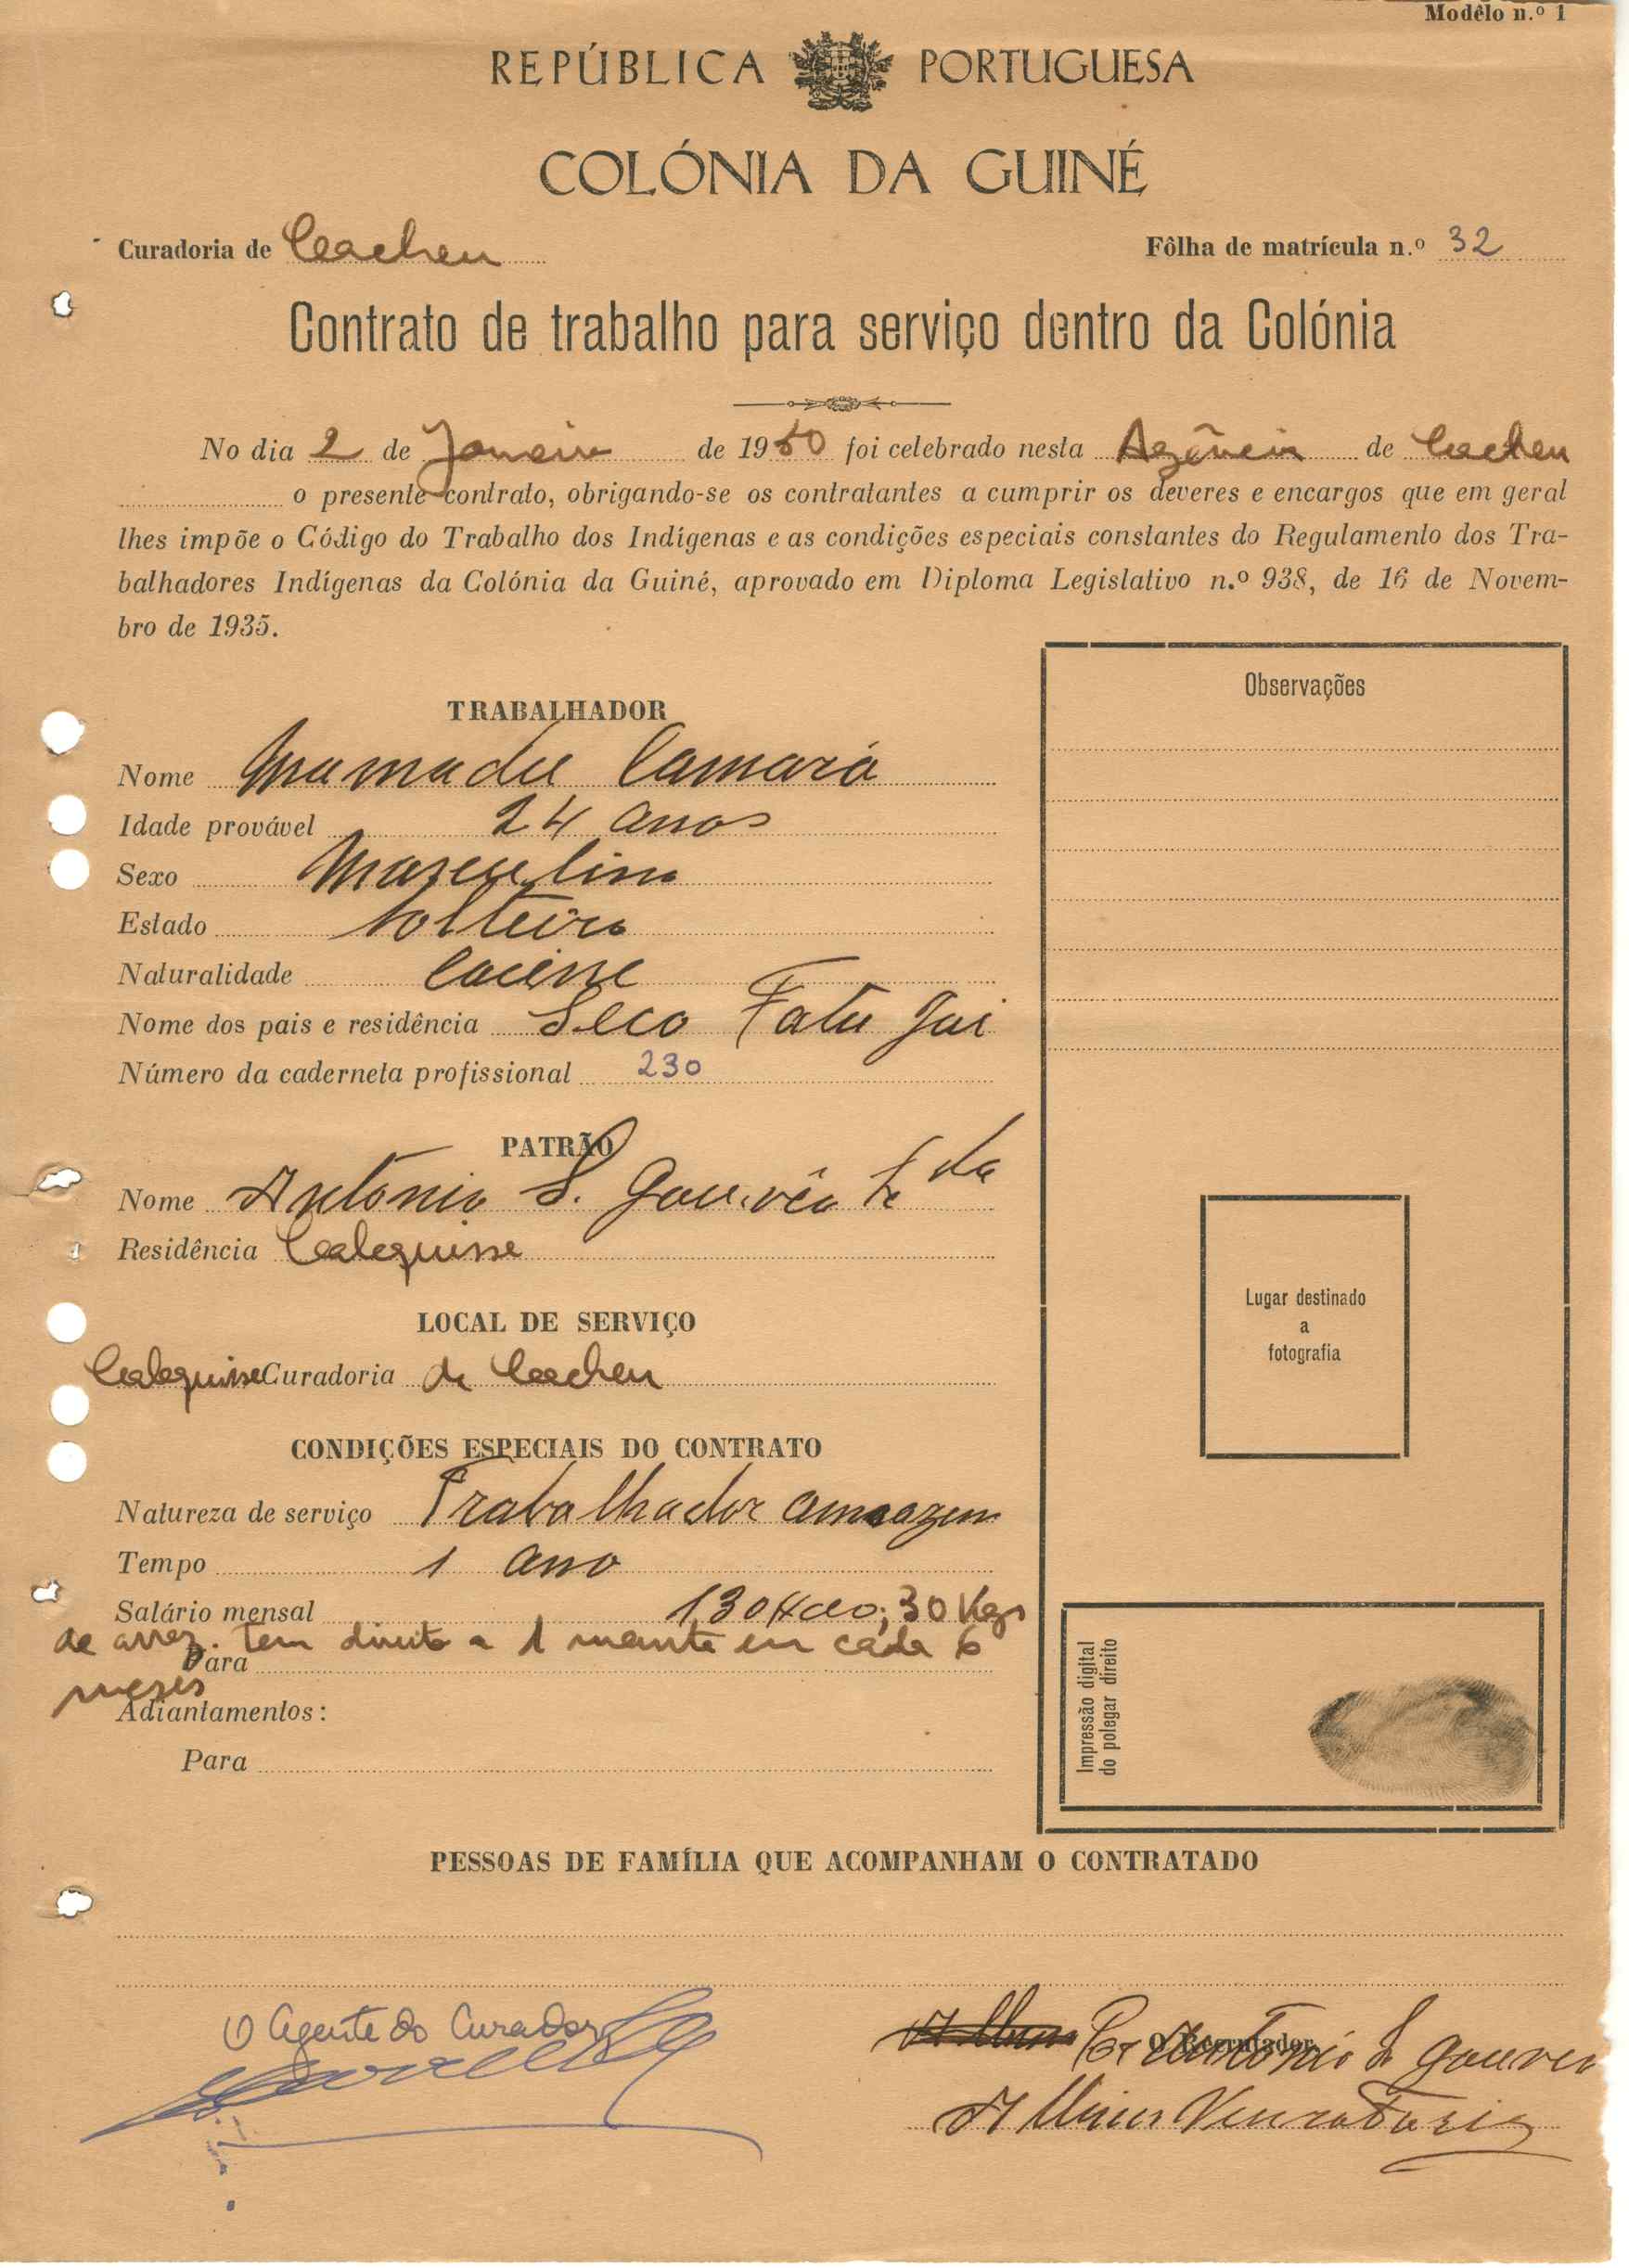 Modêlo n.º 1
REPÚBLICA PORTUGUESA
COLÓNIA DA GUINÉ
Curadoria de Cacheu Fôlha de matrícula n.º 32
Contrato de trabalho para serviço dentro da Colónia
No dia 2 de Janeiro de 1950 foi celebrado nesta Agência de Cacheu
o presente contrato, obrigando-se os contratantes a cumprir os deveres e encargos que em geral
lhes impõe o Código do Trabalho dos Indígenas e as condições especiais constantes do Regulamento dos Tra-
balhadores Indígenas da Colónia da Guiné, aprovado em Diploma Legislativo n.º 938, de 16 de Novem-
bro de 1935.
TRABALHADOR
Nome Mamadu Camará
Idade provável 24 anos
Sexo Masculino
Estado Solteiro
Naturalidade
Nome dos pais e residência Seco Fatu Jai
Número da caderneta profissional 230
PATRÃO
Nome António S. Gouvêa Lda
Residência Calequisse
LOCAL DE SERVIÇO
Calequisse Curadoria de Cacheu
CONDIÇÕES ESPECIAIS DO CONTRATO
Natureza de serviço Trabalhador armazem
Tempo 1 ano
Salário mensal 130$00; 30 Kgs
de arroz. Tem direito a 1 manta em cada 6
Para
meses
Adiantamentos:
Para
Observações
Lugar destinado
a
fotografia
Impressão digital
do polegar direito
PESSOAS DE FAMÍLIA QUE ACOMPANHAM O CONTRATADO
O Agente do Curador
O Recrutador
António S Gouvea